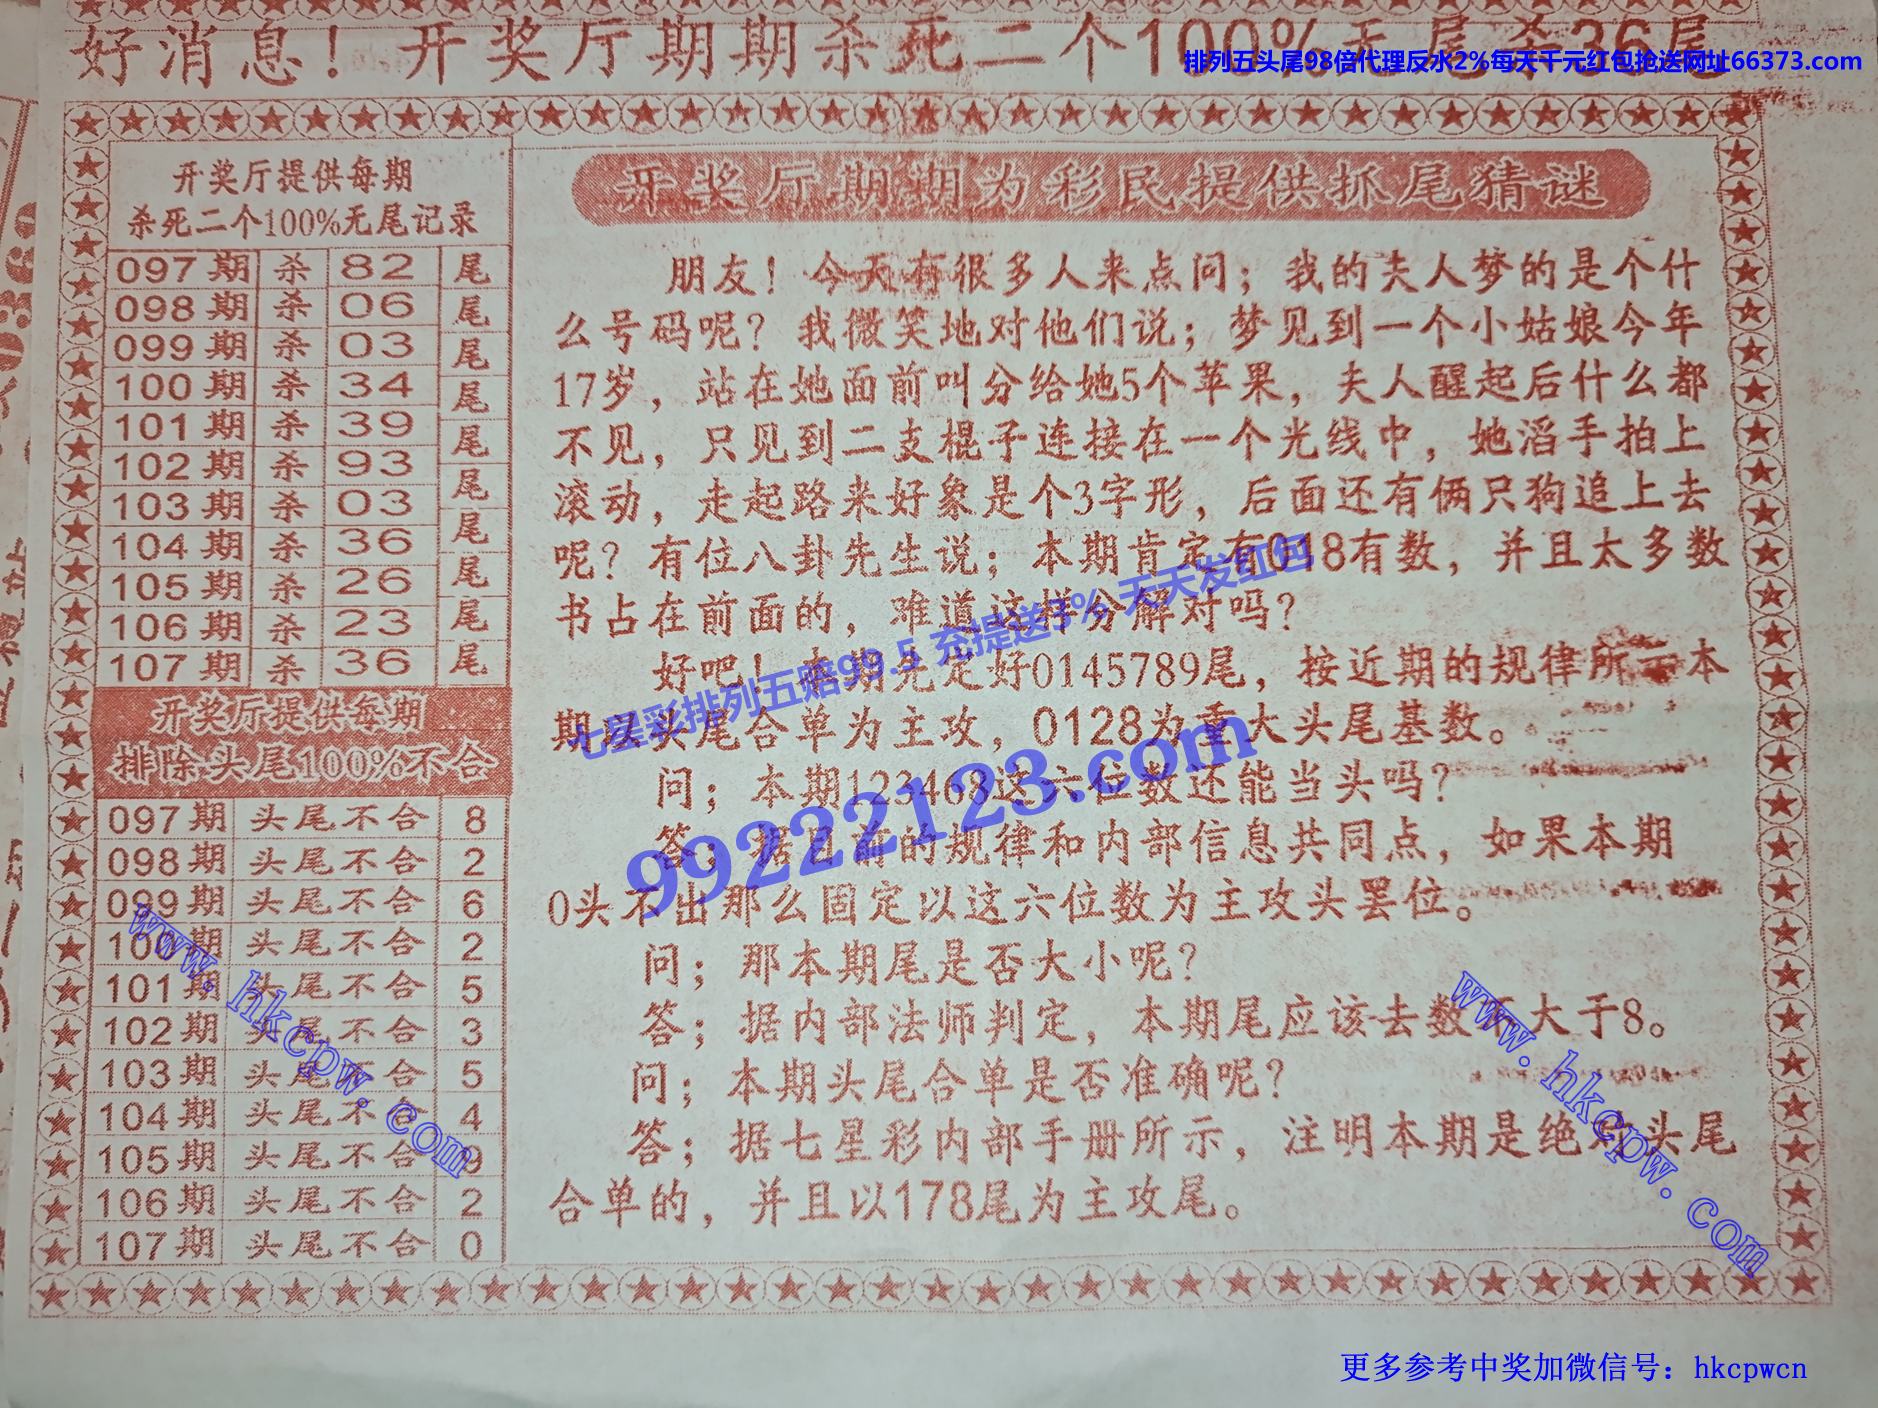 好消息！开奖厅期期杀死二个100%无尾杀36尾
排列五头尾98倍代理反水2%每天千元红包抢送网址66373.com
开奖厅提供每期
杀死二个100%无尾记录
097期 杀 82 尾
098期 杀 06 尾
099期 杀 03 尾
100期 杀 34 尾
101期 杀 39 尾
102期 杀 93 尾
103期 杀 03 尾
104期 杀 36 尾
105期 杀 26 尾
106期 杀 23 尾
107期 杀 36 尾
开奖厅提供每期
排除头尾100%不合
097期 头尾不合 8
098期 头尾不合 2
099期 头尾不合 6
100期 头尾不合 2
101期 头尾不合 5
102期 头尾不合 3
103期 头尾不合 5
104期 头尾不合 4
105期 头尾不合 9
106期 头尾不合 2
107期 头尾不合 0
开奖厅期期为彩民提供抓尾猜谜
朋友！今天有很多人来点问；我的夫人梦的是个什
么号码呢？我微笑地对他们说；梦见到一个小姑娘今年
17岁，站在她面前叫分给她5个苹果，夫人醒起后什么都
不见，只见到二支棍子连接在一个光线中，她滔手拍上
滚动，走起路来好象是个3字形，后面还有俩只狗追上去
呢？有位八卦先生说；本期肯定有018有数，并且太多数
书占在前面的，难道这样分解对吗？
好吧！本期先定好0145789尾，按近期的规律所示本
期以头尾合单为主攻，0128为重大头尾基数。
问；本期123468这六位数还能当头吗？
答；据目前的规律和内部信息共同点，如果本期
0头不出那么固定以这六位数为主攻头罢位。
问；那本期尾是否大小呢？
答；据内部法师判定，本期尾应该去数不大于8。
问；本期头尾合单是否准确呢？
答；据七星彩内部手册所示，注明本期是绝对头尾
合单的，并且以178尾为主攻尾。
七星彩排列五赔99.5 充提送3% 天天发红包
99222123.com
www.hkcpw.com
www.hkcpw.com
更多参考中奖加微信号：hkcpwcn